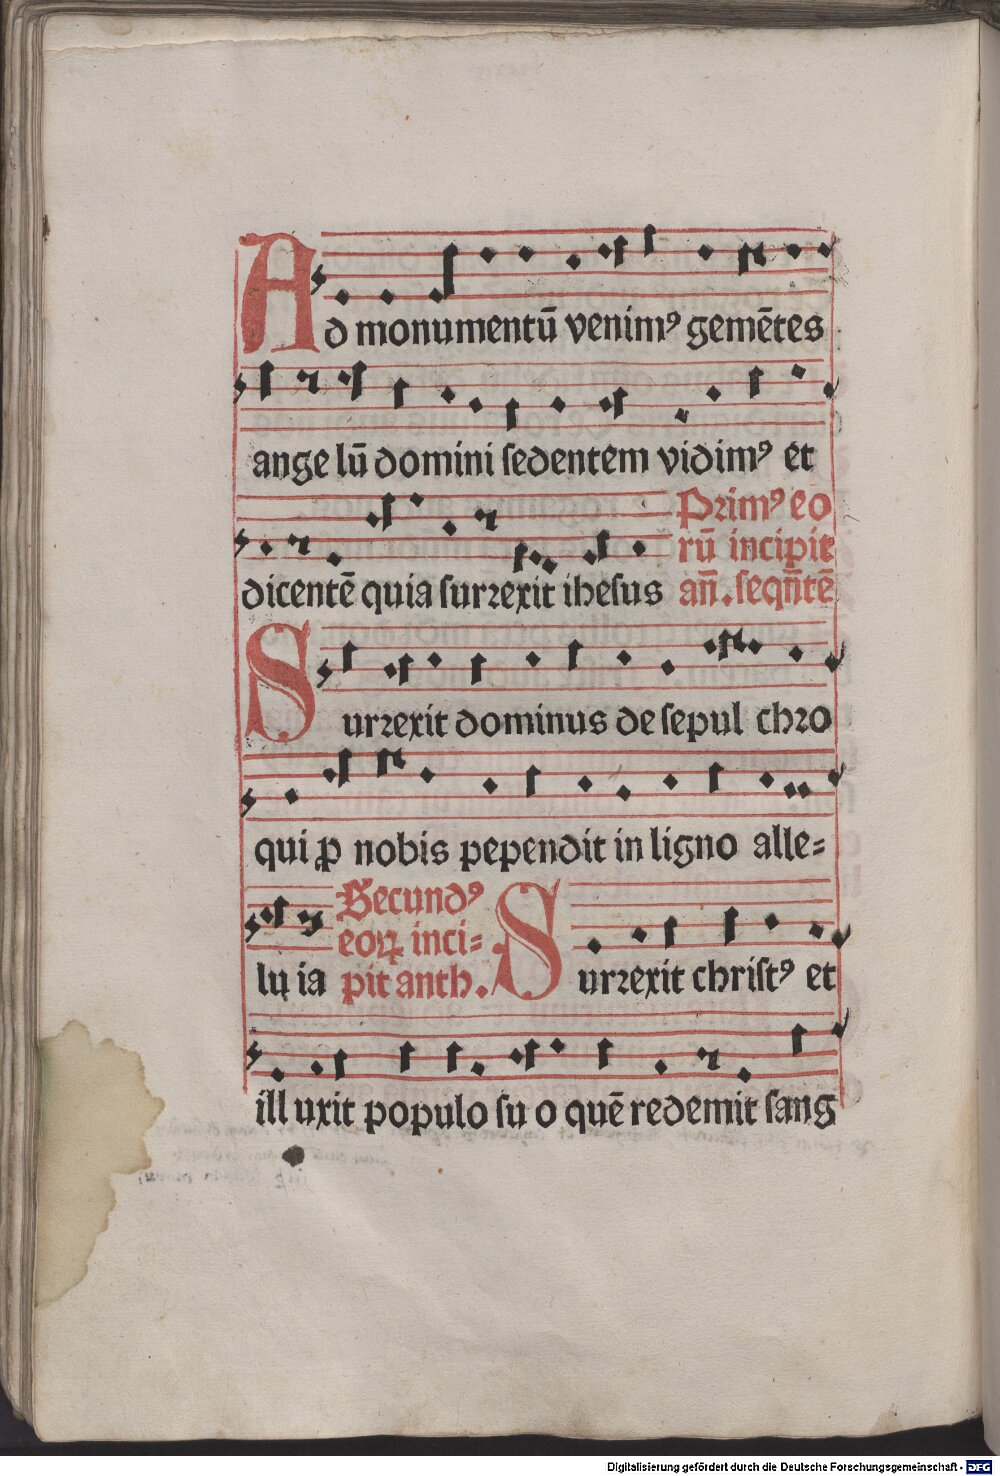 Ad monumentū venimꝰ gemētes
ange lū domini sedentem vidimꝰ et
dicentē quia surrexit ihesus
Primꝰ eo
rū incipit
an̄. seqn̄tē
Surrexit dominus de sepul chro
qui ꝓ nobis pependit in ligno alle=
lu ia
Secundꝰ
eoꝝ inci=
pit anth.
Surrexit christꝰ et
ill uxit populo su o quē redemit sang
Digitalisierung gefördert durch die Deutsche Forschungsgemeinschaft - DFG